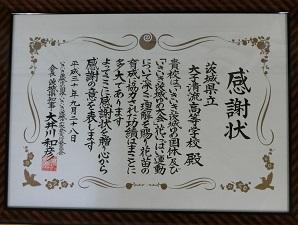 感謝状
茨城県立
大子清流高等学校 殿
貴校はいきいき茨城ゆめ国体及び
いきいき茨城ゆめ大会花いっぱい運動
において深くご理解を賜り花苗の
育成に協力された功績はまことに
多大であります
よってここに感謝状を贈り心から
感謝の意を表します
平成三十年九月二十八日
会長 茨城県知事 大井川和彦